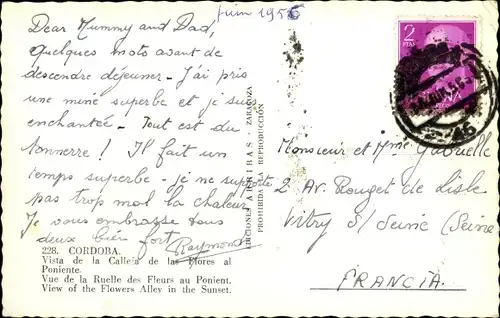 juin 1956
Dear Mummy and Dad,
Quelques mots avant de
descendre déjeuner - J'ai pris
une mine superbe et je suis
enchantée - Tout est du
tonnerre ! Il fait un
temps superbe - je ne supporte
pas trop mal la chaleur
Je vous embrasse tous
deux bien fort
Raymonde
228. CORDOBA.
Vista de la Calleja de las Flores al
Poniente.
Vue de la Ruelle des Fleurs au Ponient.
View of the Flowers Alley in the Sunset.
EDICIONES ARRIBAS - ZARAGOZA
PROHIBIDA LA REPRODUCCIÓN
2
PTAS
Monsieur et Mme Gabrielle
2 Av. Rouget de Lisle
Vitry s/ Seine (Seine
FRANCIA